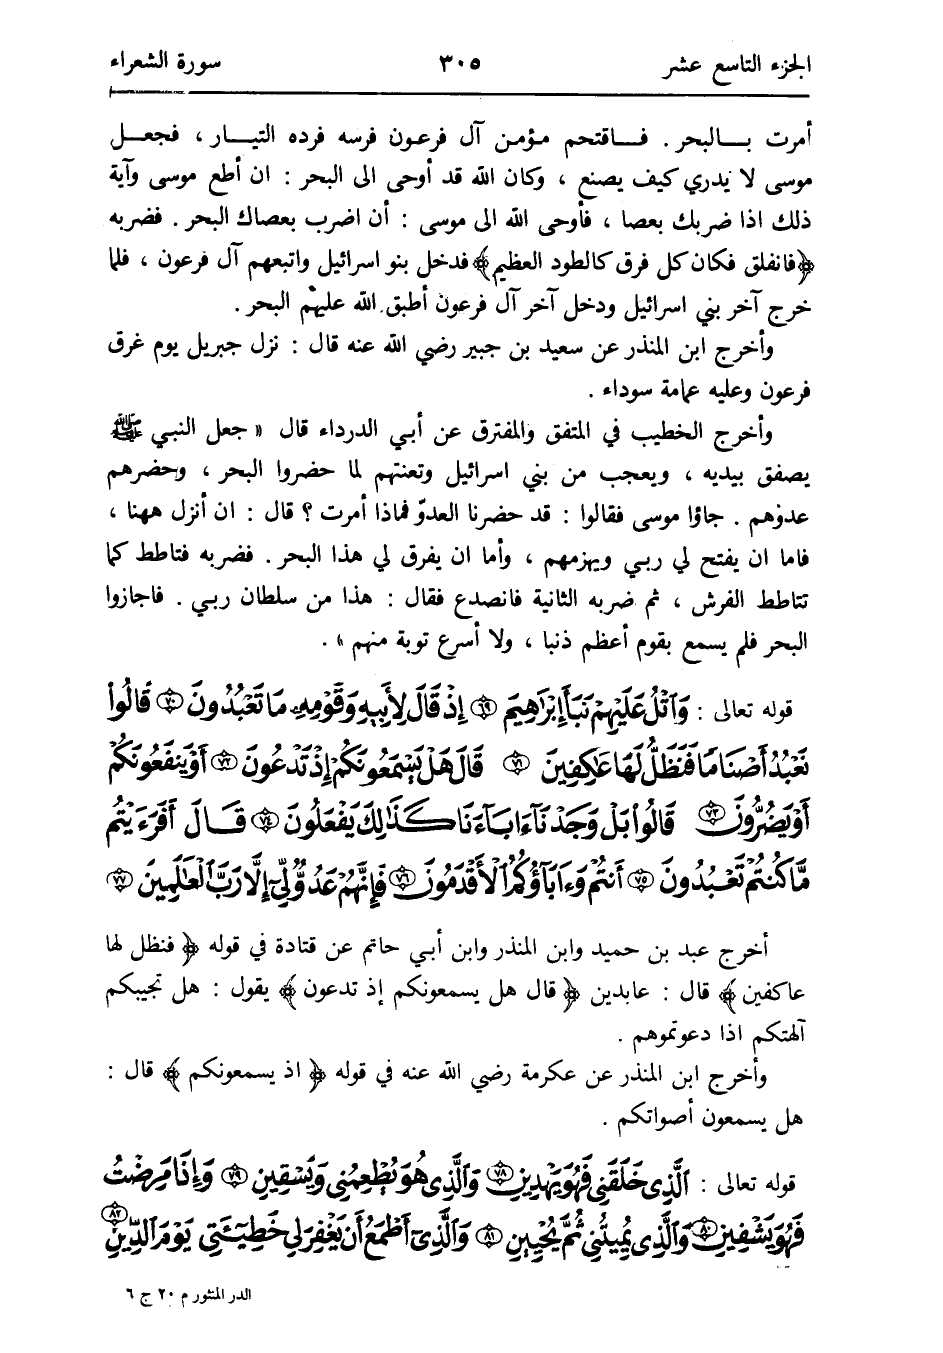 الجزء التاسع عشر ٣٠٥ سورة الشعراء
أمرت بالبحر . فاقتحم مؤمن آل فرعون فرسه فرده التيار ، فجعل
موسى لا يدري كيف يصنع ، وكان الله قد أوحى الى البحر : ان أطع موسى وآية
ذلك اذا ضربك بعصا ، فأوحى الله الى موسى : أن اضرب بعصاك البحر . فضربه
﴿فانفلق فكان كل فرق كالطود العظيم﴾ فدخل بنو اسرائيل واتبعهم آل فرعون ، فلما
خرج آخر بني اسرائيل ودخل آخر آل فرعون أطبق الله عليهم البحر .
وأخرج ابن المنذر عن سعيد بن جبير رضي الله عنه قال : نزل جبريل يوم غرق
فرعون وعليه عمامة سوداء .
وأخرج الخطيب في المتفق والمفترق عن أبي الدرداء قال « جعل النبي ﷺ
يصفق بيديه ، ويعجب من بني اسرائيل وتعنتهم لما حضروا البحر ، وحضرهم
عدوهم . جاؤا موسى فقالوا : قد حضرنا العدوّ فماذا أمرت ؟ قال : ان أنزل ههنا ،
فاما ان يفتح لي ربي ويهزمهم ، وأما ان يفرق لي هذا البحر . فضربه فتاطط كما
تتاطط الفرش ، ثم ضربه الثانية فانصدع فقال : هذا من سلطان ربي . فاجازوا
البحر فلم يسمع بقوم أعظم ذنبا ، ولا أسرع توبة منهم » .
قوله تعالى : وَٱتْلُ عَلَيْهِمْ نَبَأَ إِبْرَٰهِيمَ ۝٦٩ إِذْ قَالَ لِأَبِيهِ وَقَوْمِهِۦ مَا تَعْبُدُونَ ۝٧٠ قَالُوا۟
نَعْبُدُ أَصْنَامًا فَنَظَلُّ لَهَا عَٰكِفِينَ ۝٧١ قَالَ هَلْ يَسْمَعُونَكُمْ إِذْ تَدْعُونَ ۝٧٢ أَوْ يَنفَعُونَكُمْ
أَوْ يَضُرُّونَ ۝٧٣ قَالُوا۟ بَلْ وَجَدْنَآ ءَابَآءَنَا كَذَٰلِكَ يَفْعَلُونَ ۝٧٤ قَالَ أَفَرَءَيْتُم
مَّا كُنتُمْ تَعْبُدُونَ ۝٧٥ أَنتُمْ وَءَابَآؤُكُمُ ٱلْأَقْدَمُونَ ۝٧٦ فَإِنَّهُمْ عَدُوٌّ لِّىٓ إِلَّا رَبَّ ٱلْعَٰلَمِينَ ۝٧٧
أخرج عبد بن حميد وابن المنذر وابن أبي حاتم عن قتادة في قوله ﴿ فنظل لها
عاكفين ﴾ قال : عابدين ﴿ قال هل يسمعونكم إذ تدعون ﴾ يقول : هل تجيبكم
آلهتكم اذا دعوتموهم .
وأخرج ابن المنذر عن عكرمة رضي الله عنه في قوله ﴿ اذ يسمعونكم ﴾ قال :
هل يسمعون أصواتكم .
قوله تعالى : ٱلَّذِى خَلَقَنِى فَهُوَ يَهْدِينِ ۝٧٨ وَٱلَّذِى هُوَ يُطْعِمُنِى وَيَسْقِينِ ۝٧٩ وَإِذَا مَرِضْتُ
فَهُوَ يَشْفِينِ ۝٨٠ وَٱلَّذِى يُمِيتُنِى ثُمَّ يُحْيِينِ ۝٨١ وَٱلَّذِىٓ أَطْمَعُ أَن يَغْفِرَ لِى خَطِيٓـَٔتِى يَوْمَ ٱلدِّينِ ۝٨٢
الدر المنثور م ٢٠ ج ٦